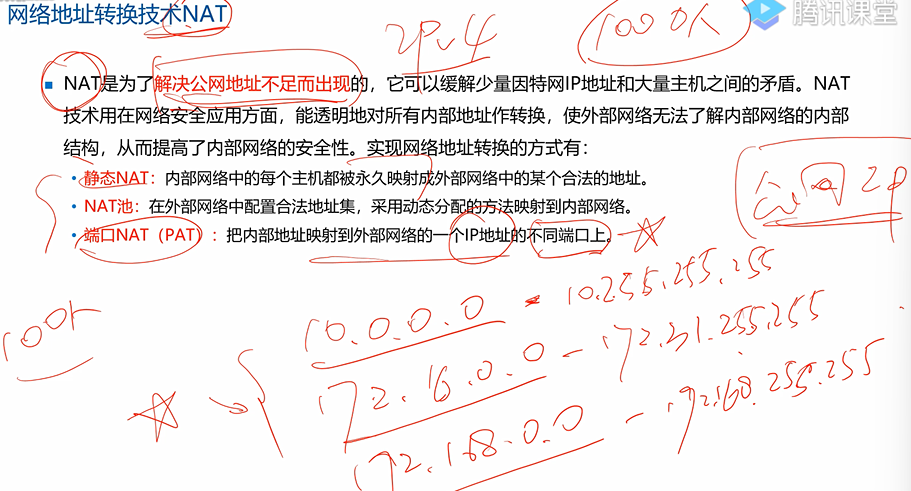 网络地址转换技术NAT
腾讯课堂
IPv4
1000人
NAT是为了解决公网地址不足而出现的，它可以缓解少量因特网IP地址和大量主机之间的矛盾。NAT
技术用在网络安全应用方面，能透明地对所有内部地址作转换，使外部网络无法了解内部网络的内部
结构，从而提高了内部网络的安全性。实现网络地址转换的方式有：
静态NAT：内部网络中的每个主机都被永久映射成外部网络中的某个合法的地址。
NAT池：在外部网络中配置合法地址集，采用动态分配的方法映射到内部网络。
端口NAT（PAT）：把内部地址映射到外部网络的一个IP地址的不同端口上。
公网IP
10.0.0.0 - 10.255.255.255
172.16.0.0 - 172.31.255.255
172.168.0.0 - 192.168.255.255